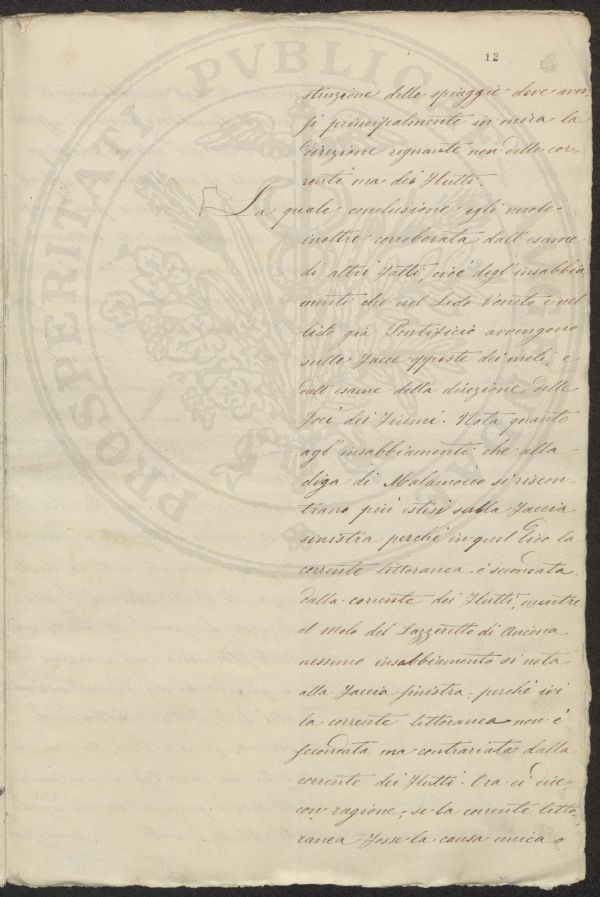 12
struzione delle spiaggie dove aver
si principalmente in mira la
direzione regnante non delle cor-
renti ma dei flutti.
La quale conclusione egli vuole
inoltre corroborata dall'esame
di altri fatti, cioè degl'insabbia
menti che nel Lido Veneto e nel
lido già Pontificio avvengono
sulle facce opposte dei moli, e
dall'esame della direzione delle
foci dei fiumi. Nota quanto
agl'insabbiamenti che alla
diga di Malamocco si riscon-
trano più estesi sulla faccia
sinistra perchè in quel Lido la
corrente littoranea è secondata
dalla corrente dei flutti, mentre
al molo del Lazzeretto di Ancona
nessuno insabbiamento si nota
alla faccia sinistra, perchè ivi
la corrente littoranea non è
secondata ma contrariata dalla
corrente dei flutti. Ora ei dice
con ragione, se la corrente litto-
ranea fosse la causa unica o
PROSPERITATI PVBLICAE